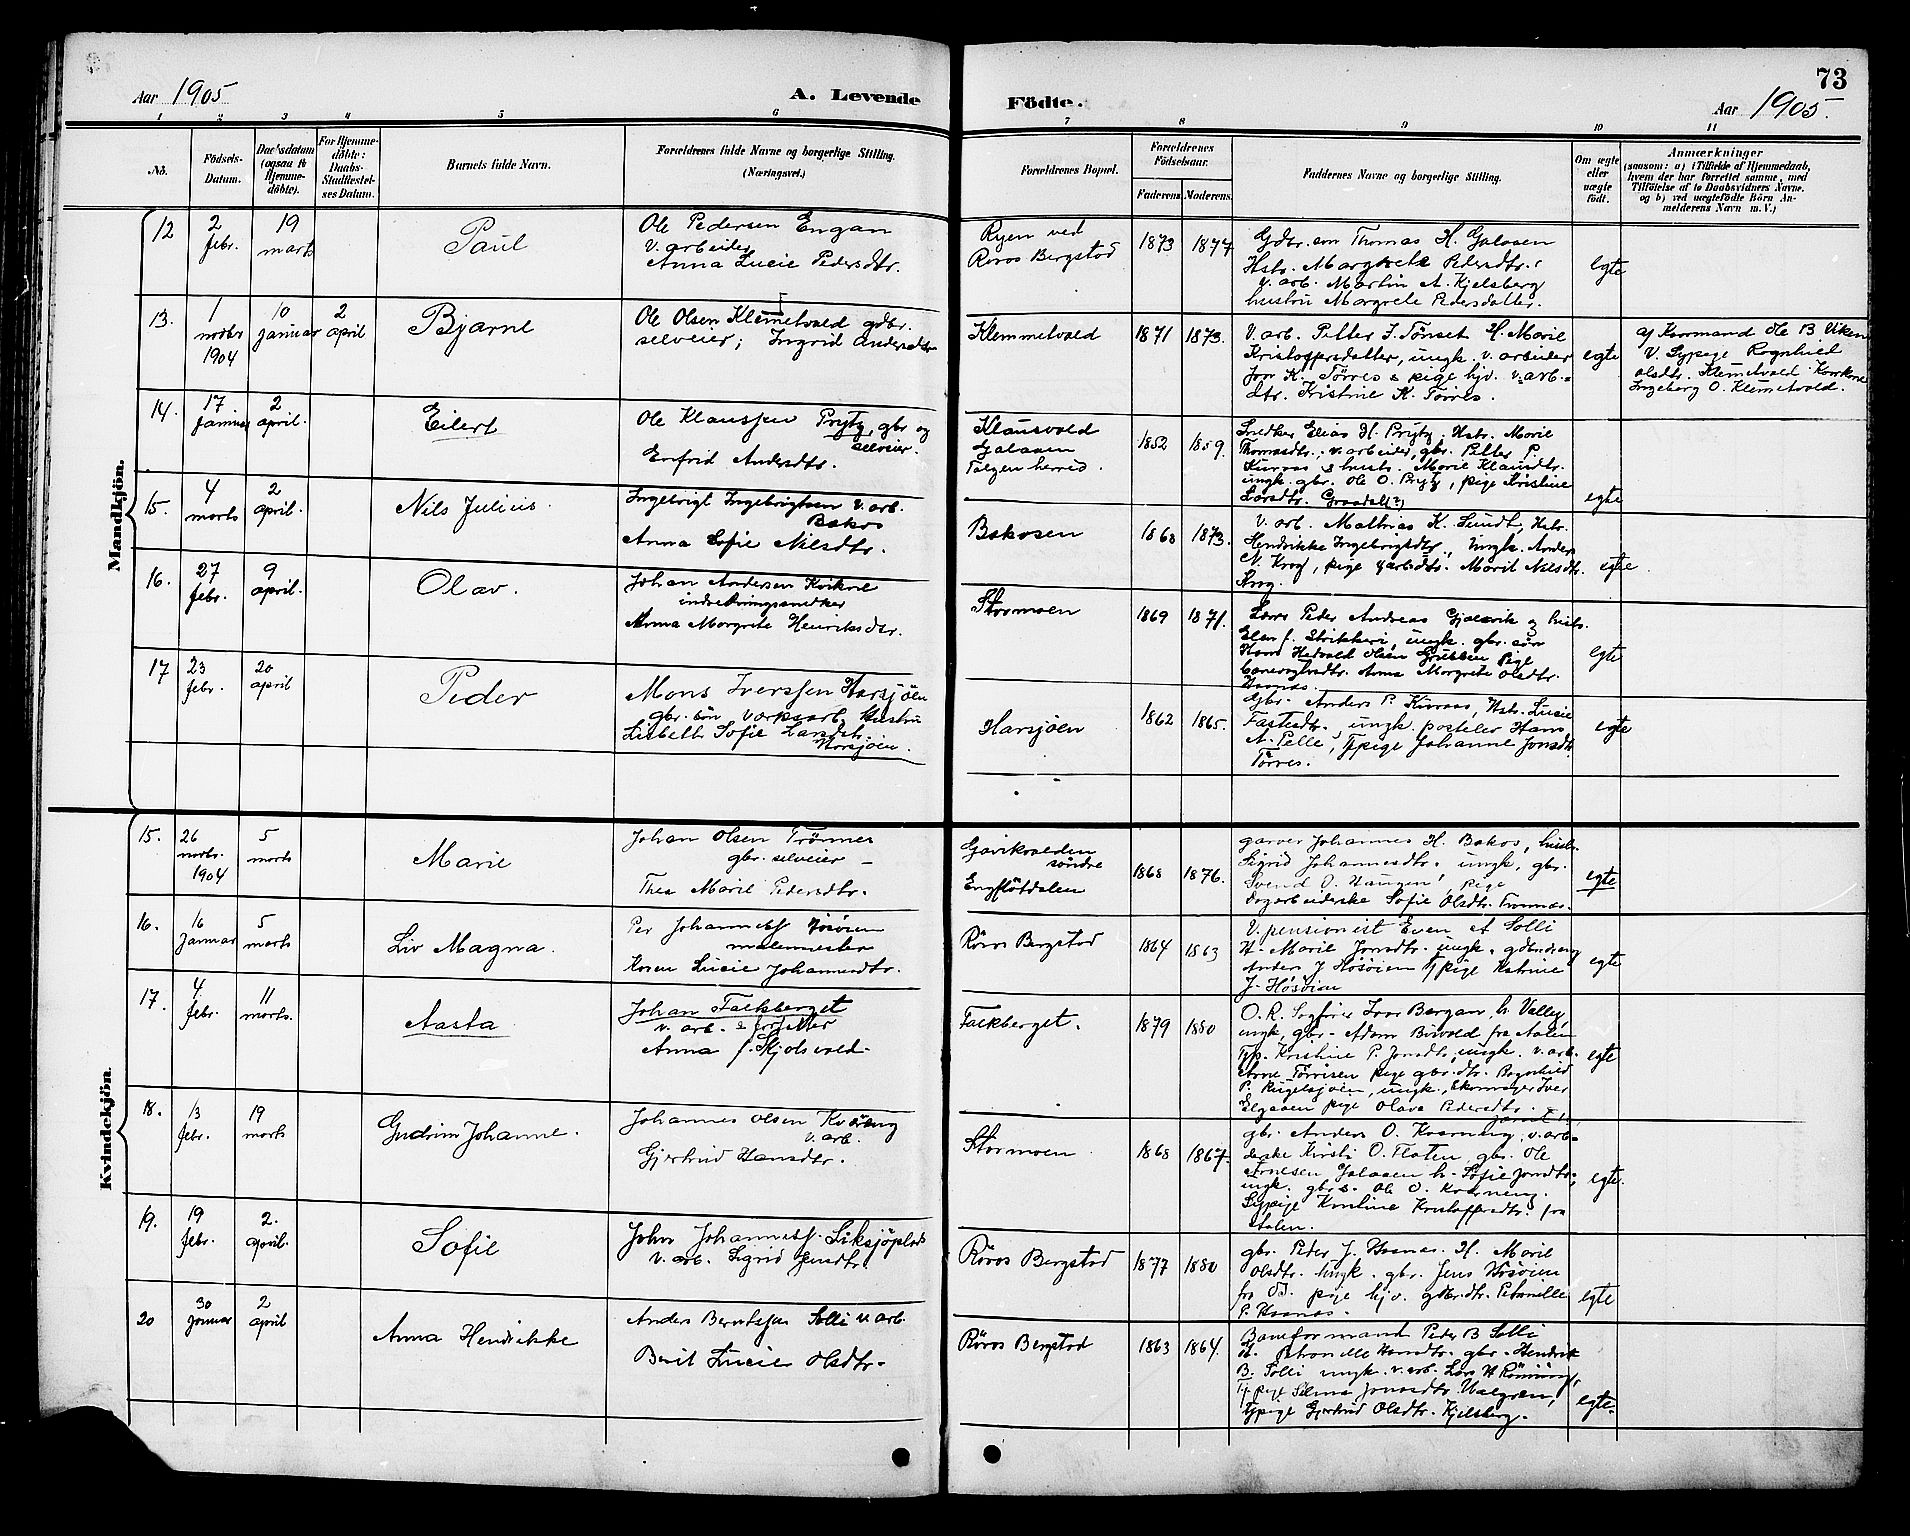 73
Aar 1905 A. Levende Födte. Aar 1905.
1 2 3 4 5 6 7 8 9 10 11
No. Födsels-Datum. Daabsdatum (ogsaa til Hjemme-döbte). For Hjemme-döbte: Daabs-Stadfæstel-ses Datum. Barnets fulde Navn. Forældrenes fulde Navne og borgerlige Stilling. (Næringsvei.) Forældrenes Bopæl. Forældrenes Födselsaar. Faderens Moderens Faddernes Navne og borgerlige Stilling. Om ægte eller uægte födt. Anmærkninger
(saasom: a) i Tilfælde af Hjemmedaab,
hvem der har forrettet samme, med
Tilföielse af to Daabsvidners Navne.
og b) ved uægtefödte Börn An-
melderens Navn m. V.)
Mandkjön.
12 2 febr. 19 marts Paul
Ole Pedersen Engan
v. arbeider
Anna Lucie Pedersdtr.
Ryen ved
Röros Bergstad
1873 1877
Gdbr. søn Thomas H. Galaaen
Hstr. Margrete Pedersdtr.
v. arb. Martin A. Kjelsberg
hustru Margrete Pedersdatter.
egte
13. 1 novbr 1904 10 januar 2 april Bjarne
Ole Olsen Klemetvold gdbr.
selveier; Ingrid Andersdtr
Klemmetvold
1871 1873.
V. arb. Petter J. Tønset H. Marie
Kristoffersdatter, ungk. v. arbeider
Jon K. Tørres & pige hjv. v. arb.-
dtr. Kristine K. Tørres.
egte
af Kormand Ole B. Viken
V. Sypige Ragnhild
Olsdtr. Klemetvold Konkone
Ingeborg O. Klemetvold.
14. 17 januar 2 april. Eilert
Ole Klaussen Prytz, gbr og
selveier.
Enfrid Andersdtr.
Klausvold
Galaaen
Tolgen herred.
1852 1859.
Snedker Elias H. Prytz, Hstr. Marie
Thomasdtr.; v. arbeider, gbr. Petter P.
Kuraas & hustr. Marie Klausdtr.
ungk. gbr. Ole O. Prytz, pige Kristine
Larsdtr. Graadal(?)
egte
15. 4 marts 2 april. Nils Julius.
Ingebrigt Ingebrigtsen v. arb.
Bakos
Anna Sofie Nilsdtr.
Bakosen
1868 1873.
V. arb. Mathias K. Sundt, Hstr.
Hendrikke Ingebrigtsdtr., Ungk. Anders
N. Krog, pige Marit Nilsdtr.
Krog.
egte.
16. 27 febr. 9 april. Olav.
Johan Andersen Kvikne
indretningssnedker
Anna Margrete Henriksdtr.
Stormoen
1869 1871.
Lars Peder Andreas Gjelsvik & hust.
Elen f. Strikkeri, ungk. gbr. søn
Hans Hedvald Olsen Grubben Pige
Anna Margrete Olsdtr.
Haanæs.
egte
17 23 febr. 20 april Peder
Mons Iverssen Harsjöen
gbr. sön verksarb. Hustru
Lisbeth Sofie Larsdtr.
Harsjöen.
Harsjöen
1862 1865.
Gbr. Anders P. Kurraas, Hstr. Lucie
Fastesdtr., ungk. postelev Hans
A. Pelle, Tjpige Johanne Jonsdtr
Törres.
egte
Kvindekjön.
15. 26 novbr. 1904 5 marts Marie
Johan Olsen Trönnes
gbr. selveier —
Thea Marie Pedersdtr.
Gjovikvolden
söndre
Engflötdalen
1868 1876.
garver Johannes H. Bakos, hustr.
Sigrid Johannesdtr. ungk. gbr.
Svend O. Haugen, pige
Dagarbeiderske Sofie Olsdtr. Trønnæs.
egte
16. 16 januar 5 marts Liv Magna.
Per Johannesf Hösöien
malermester
Karen Lucie Johannesdtr.
Röros Bergstad
1864 1863
V. pensionist Even A Solli
H. Marie Jonsdtr. ungk. gdbr.dreng
Anders J Høsøien Tjpige Katrine
J. Høsöien
egte
17. 4 febr. 11 marts. Aasta
Johan Falkberget
v. arb. & forfatter
Anna f. Skjolsvold-
Falkberget.
1879 1880
O. R. Sagfører Ivar Bergan, h. Valley,
ungk. gbr. Adam Buvold fra Aalen
Tjp. Kristine P. Jonsdtr., ungk. v. arb.
Arne Törrisen pige gbr. dtr. Ragnhild
P. Rugelsjöen, ungk. Skomager Iver
Elgaaen pige Olava Pedersdtr.
egte
18. 13 febr. 19 marts Gudrun Johanne.
Johannes Olsen Kværneng
v. arb.
Gjertrud Hansdtr.
Stormoen
1868 1867.
gbr. Anders O. Kværneng. v. arb-
derske Kirsti O. Flaten, gbr. Ole
Arnesen Galaaen h. Sofie Jonsdtr.;
ungk. gbr s. Ole O. Kværneng.
Sypige Karoline Kristoffersdtr. fra
Aalen.
egte.
19. 19 febr. 2. april. Sofie
John Johannesf. Siksjöplads
v. arb. Sigrid Jensdtr
Röros Bergstad
1877 1880
gbr. Peder J. Haanæs. H. Marie
Olsdtr. Ungk. gbr. Jens Høsøien
fra Öd. pige hjv. gdbr.dtr. Petronelle
P. Haanæs.
egte
20 30 januar 2 april Anna Hendrikke
Anders Berntsen Solli v arb.
Berit Lucie Olsdtr.
Röros Bergstad
1863 1864.
Baneformand Peder B Solli
H. Petronelle Hansdtr. gbr. Hendrik
B. Solli ungk. v. arb. Lars H Rönning,
Tj pige Selma Jonasdtr. Halgren,
Tjpige Gjertrud Olsdtr. Kjelsberg.
egte.